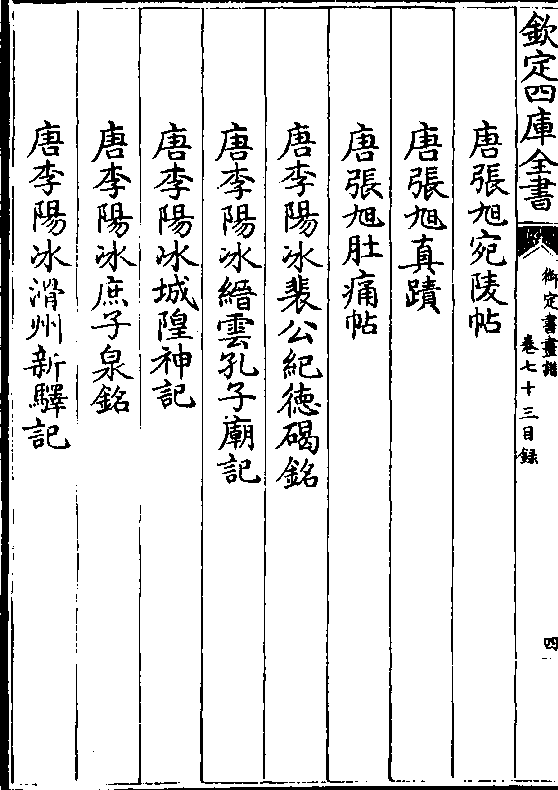 欽定四庫全書
御定書畫譜
卷七十三目録
四
唐張旭宛陵帖
唐張旭真蹟
唐張旭肚痛帖
唐李陽冰裴公紀德碣銘
唐李陽冰縉雲孔子廟記
唐李陽冰城隍神記
唐李陽冰庶子泉銘
唐李陽冰滑州新驛記